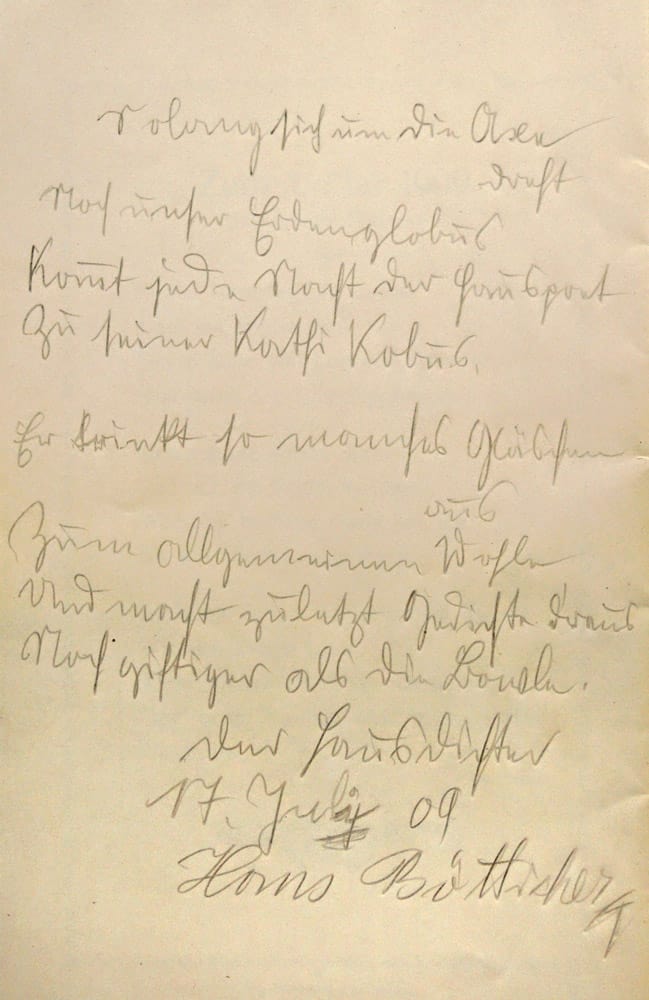 Solang sich um die Axe
dreht
Noch unser Erdenglobus
Kom̄t jede Nacht der Hauspoet
Zu seiner Kathi Kobus.
Er trinkt so manches Gläschen
aus
Zum allgemeinen Wohle
Und macht zuletzt Gedichte draus
Noch giftiger als die Bowle.
Der Hausdichter
17. July 09
Hans Bötticher